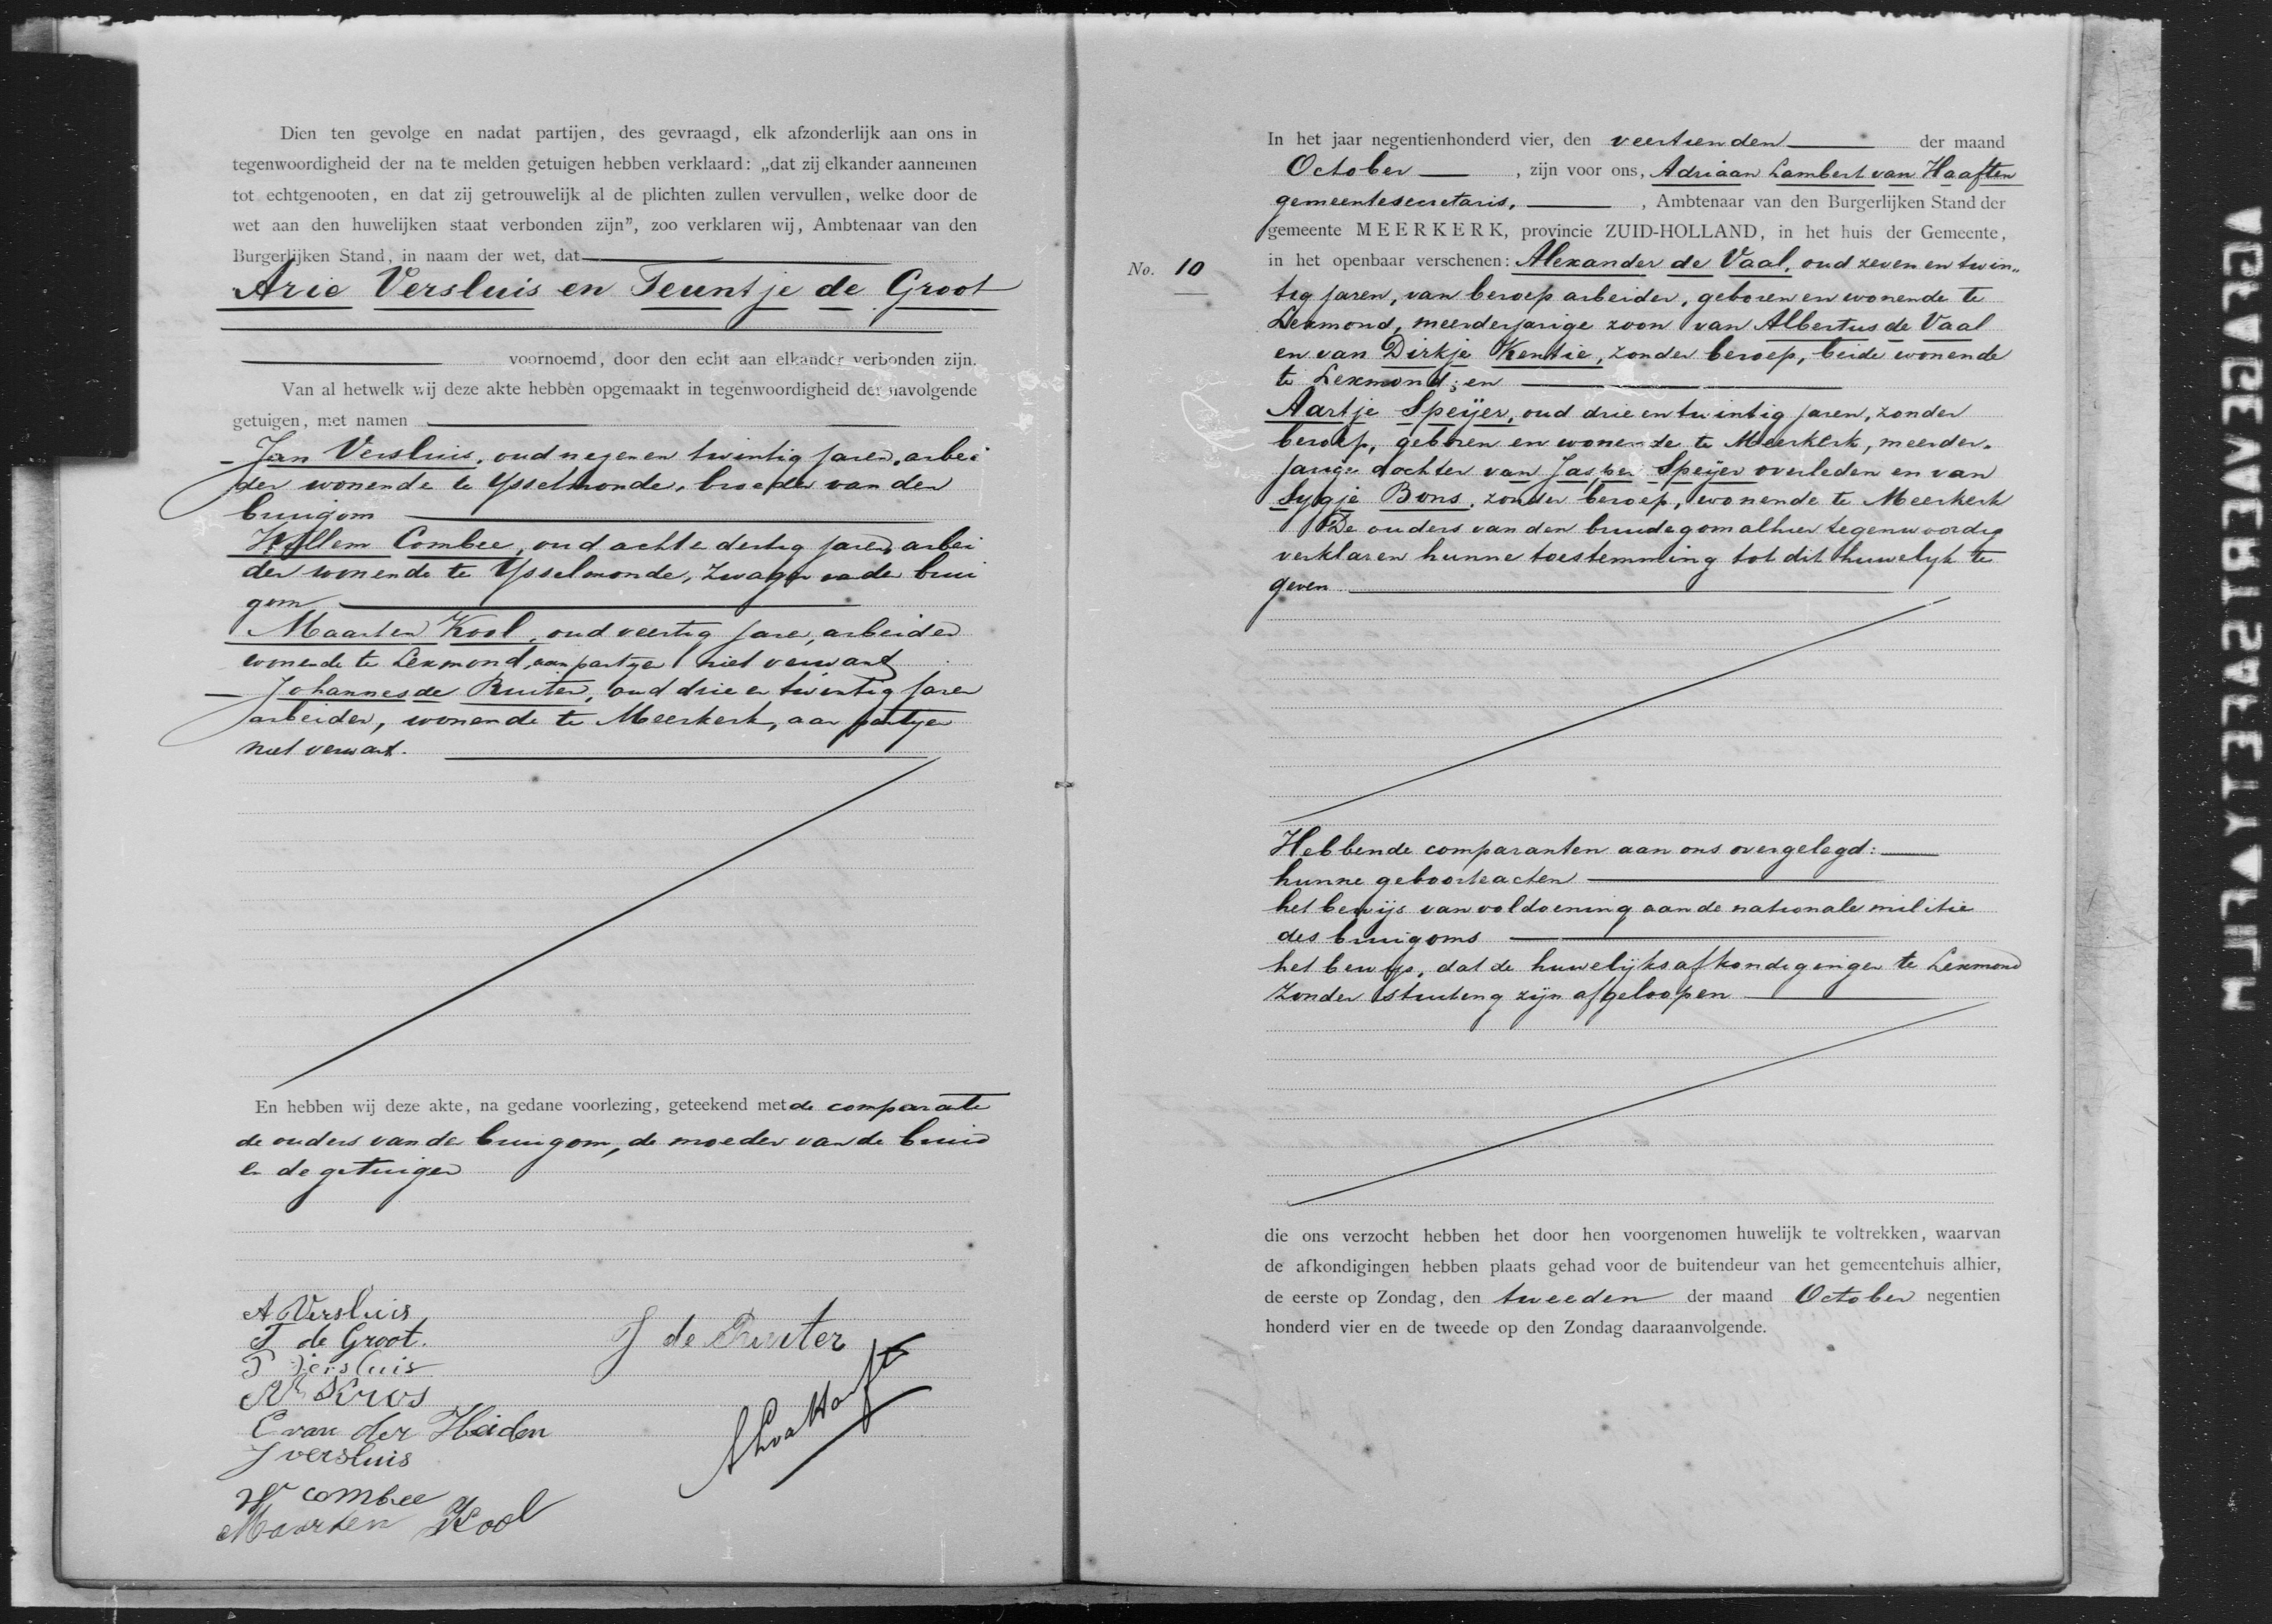 Dien ten gevolge en nadat partijen, des gevraagd, elk afzonderlijk aan ons in
tegenwoordigheid der na te melden getuigen hebben verklaard: „dat zij elkander aannemen
tot echtgenooten, en dat zij getrouwelijk al de plichten zullen vervullen, welke door de
wet aan den huwelijken staat verbonden zijn”, zoo verklaren wij, Ambtenaar van den
Burgerlijken Stand, in naam der wet, dat
Arie Versluis en Teuntje de Groot
voornoemd, door den echt aan elkander verbonden zijn.
Van al hetwelk wij deze akte hebben opgemaakt in tegenwoordigheid der navolgende
getuigen, met namen
Jan Versluis, oud negen en twintig jaren, arbei
der wonende te Ysselmonde, broeder van den
bruigom
Willem Combee, oud acht e dertig jaren, arbei
der wonende te Ysselmonde, zwager va de brui
gom
Maarten Kool, oud veertig jare, arbeider
wonende te Lexmond, aan partyen niet verwant
Johannes de Ruiter, oud drie en twintig jaren
arbeider, wonende te Meerkerk, aan partyen
niet verwant.
En hebben wij deze akte, na gedane voorlezing, geteekend met de comparante
de ouders van de bruigom, de moeder van de bruid
en de getuigen
A Versluis
T de Groot.
P Versluis
N Kros
C van der Heiden
J versluis
W combee
Maarten Kool
J de Ruiter
ALvaHaaften
In het jaar negentienhonderd vier, den veertienden der maand
October, zijn voor ons, Adriaan Lambert van Haaften
gemeentesecretaris, , Ambtenaar van den Burgerlijken Stand der
gemeente MEERKERK, provincie ZUID-HOLLAND, in het huis der Gemeente,
No. 10 in het openbaar verschenen: Alexander de Vaal, oud zeven en twin„
tig jaren, van beroep arbeider, geboren en wonende te
Lexmond, meerderjarige zoon van Albertus de Vaal
en van Dirkje Kentie, zonder beroep, beide wonende
te Lexmond; en
Aartje Speijer, oud drie en twintig jaren, zonder
beroep, geboren en wonende te Meerkerk, meerder„
jarige dochter van Jasper Speijer overleden en van
Sygje Bons, zonder beroep, wonende te Meerkerk
De ouders van den bruidegom alhier tegenwoordig
verklaren hunne toestemming tot dit huwelyk te
geven
Hebbende comparanten aan ons overgelegd:
hunne geboorteacten
het bewijs van voldoening aan de nationale militie
des bruigoms
het bewys, dat de huwelijksafkondigingen te Lexmond
zonder stuiting zijn afgeloopen
die ons verzocht hebben het door hen voorgenomen huwelijk te voltrekken, waarvan
de afkondigingen hebben plaats gehad voor de buitendeur van het gemeentehuis alhier,
de eerste op Zondag, den tweeden der maand October negentien
honderd vier en de tweede op den Zondag daaraanvolgende.